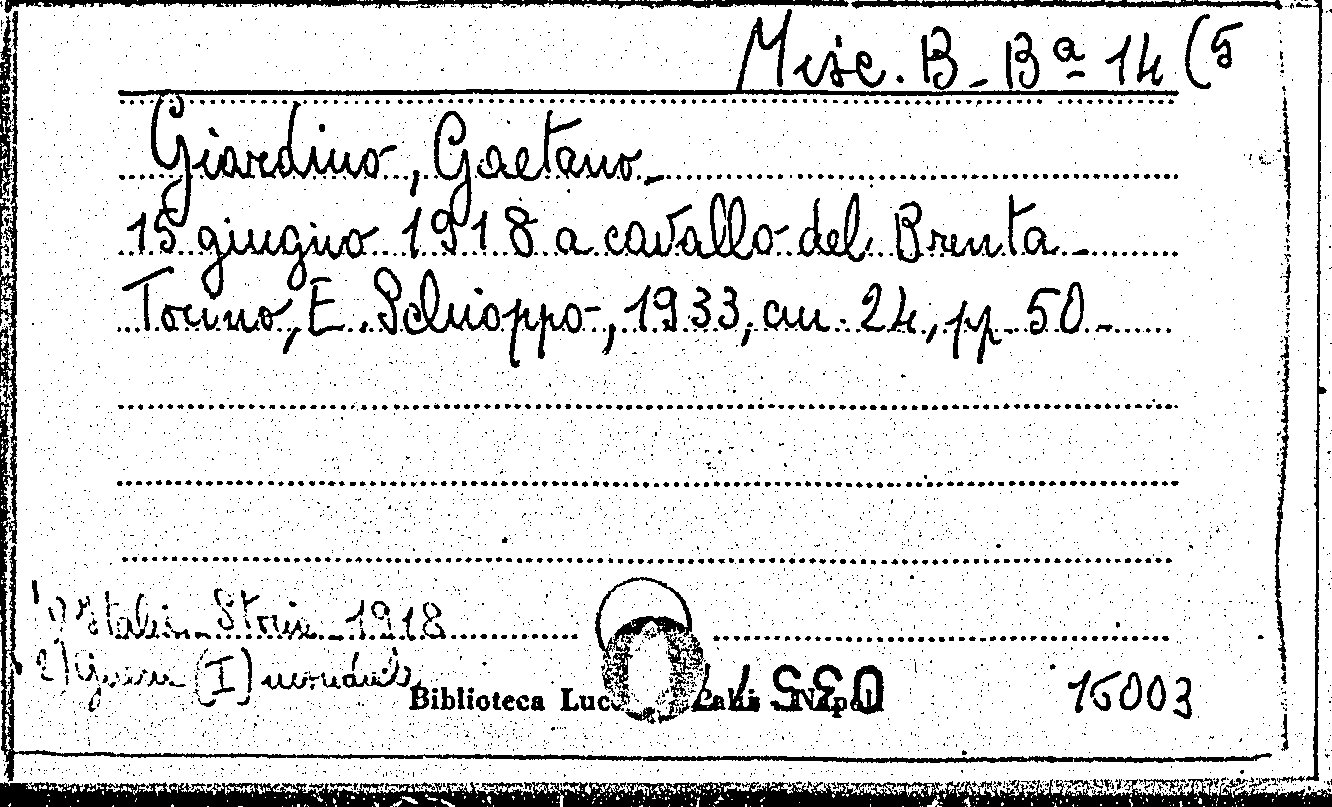 Misc. B - Bª 14 (5
Giardino, Gaetano -
15 giugno 1918 a cavallo del Brenta -
Torino, E. Schioppo, 1933, cm. 24, pp. 50 -
1) Italia - Storia - 1918
2) Guerra (I) mondiale
Biblioteca Napoli
15003